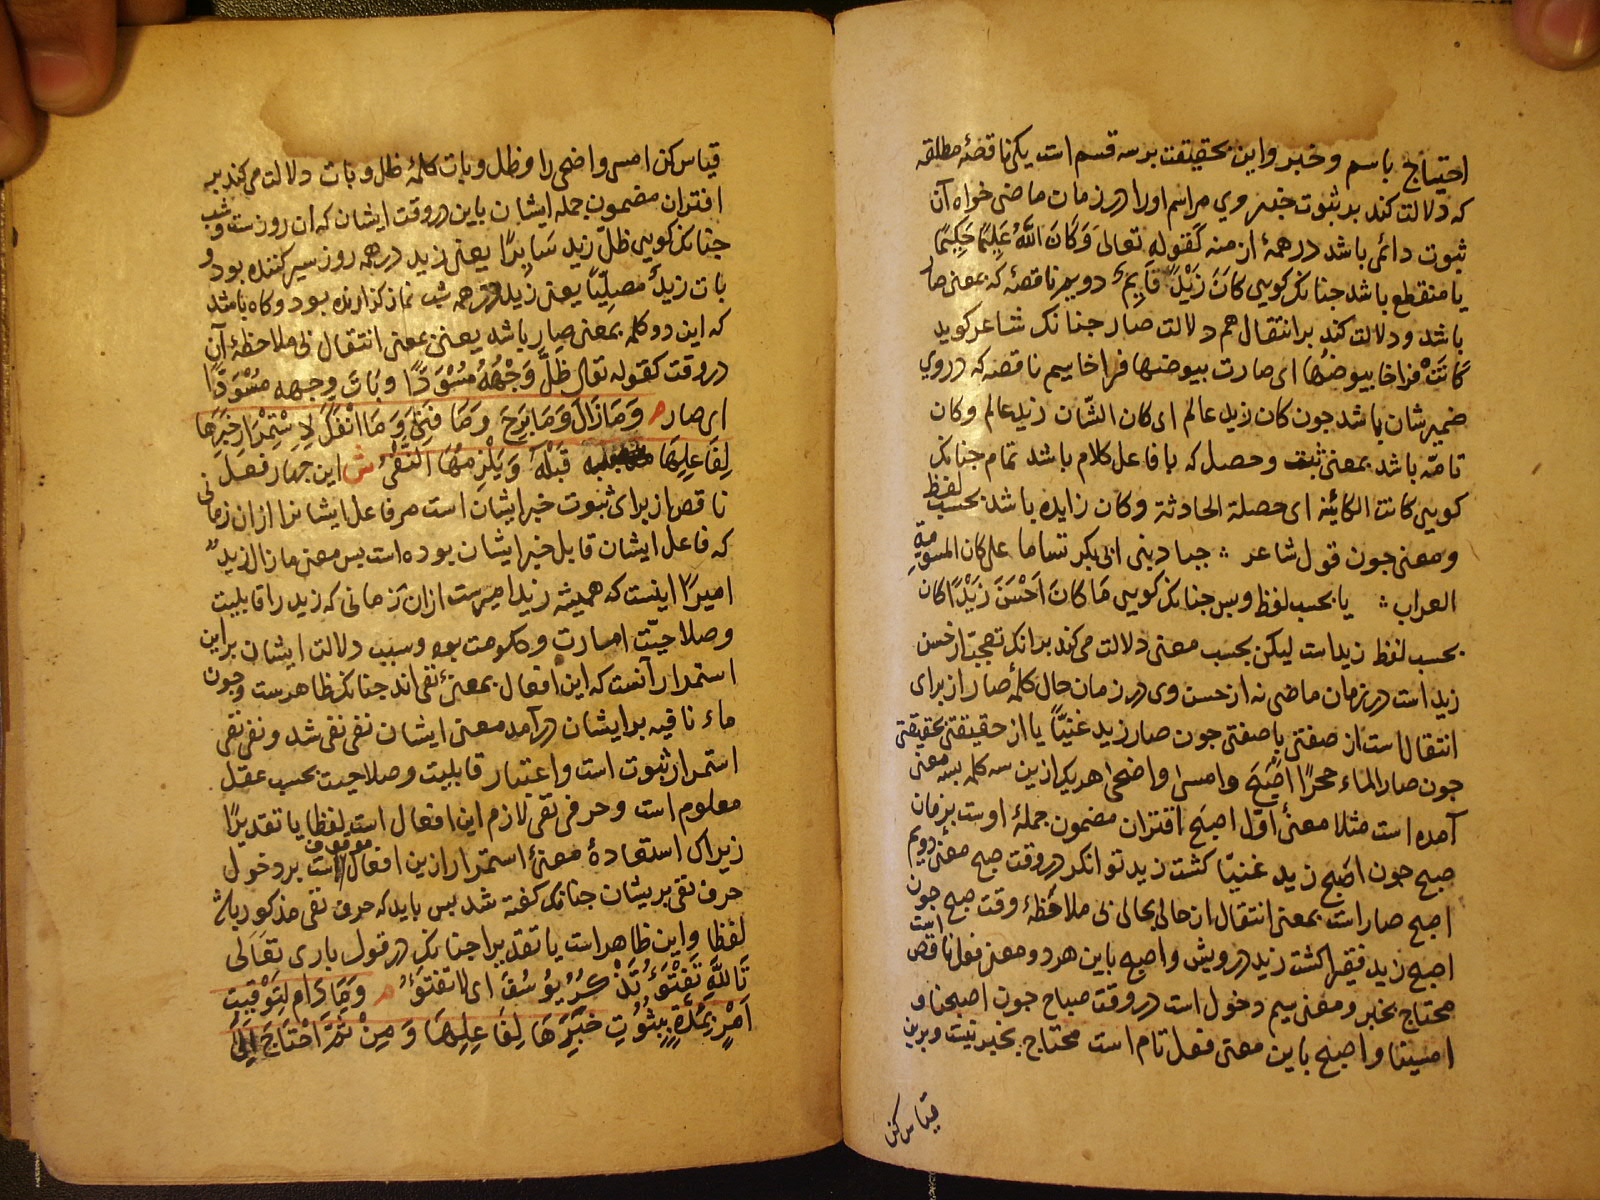 احتیاج باسم وخبر واین بحقیقت بر سه قسم است یکی ناقصهٔ مطلقه
که دلالت کند بر ثبوت خبر وی مر اسم اورا در زمان ماضی خواه آن
ثبوت دائمی باشد در همهٔ ازمنه کقوله تعالی وَکَانَ اللّٰهُ عَلِیمًا حَکِیمًا
یا منقطع باشد جنانک کویی کَانَ زَیْدٌ قَایِمٌ دویم ناقصهٔ که بمعنی صار
باشد ودلالت کند بر انتقال هم دلالت صار جنانک شاعر کوید
کَانَتْ فراخا بیوضُها ای صارت بیوضها فراخا سیم ناقصه که در وی
ضمیر شان باشد جون کان زید عالم ای کان الشّان زید عالم وکان
تامّه باشد بمعنی ثبت وحصل که با فاعل کلام باشد تمام جنانک
کویی کانت الکائنه ای حصلة الحادثة وکان زایده باشد بحسب لفظ
ومعنی جون قول شاعر جیاد بنی ابی بکر تساما علی کان المسوّمة
العراب یا بحسب لفظ وبس جنانک کویی مَا کَانَ اَحْسَنَ زَیْدًا کان
بحسب لفظ زید است لیکن بحسب معنی دلالت می کند بر آنک تعجب از حسن
زید است در زمان ماضی نه از حسن وی در زمان حال کلمهٔ صار از برای
انتقال است از صفتی با صفتی جون صار زید غنیّاً یا از حقیقتی بحقیقتی
جون صار الماء حجرًا اَصْبَحَ وامسی واضحی هر یک ازین سه کلمه بسه معنی
آمده است مثلا معنیٔ اوّل اصبح اقتران مضمون جملهٔ اوست بزمان
صبح جون اَصْبَح زید غنیّا کشت زید توانکر در وقت صبح معنی دویم
اصبح صار است بمعنی انتقال از حالی بحالی بی ملاحظهٔ وقت صبح جون
اصبح زید فقیرا کشت زید درویش واصبح باین هر دو معنی فعل ناقص است
محتاج بخبر ومعنی سیم دخول است در وقت صباح جون اصبحنا و
امسینا واصبح باین معنی فعل تام است محتاج بخبر نیست وبرین
قیاس کن
قیاس کن امسی واضحی را وظل وبات کلمهٔ ظل وبات دلالت می کند بر
اقتران مضمون جمله ایشان باین دو وقت ایشان که ان روزست وشب
جنانک کویی ظلّ زید سَایِرًا یعنی زید در همه روز سیر کننده بود و
بات زیدٌ مصلّیاً یعنی زید در همه شب نماز کزارنده بود وکاه باشد
که این دو کلمه بمعنی صار باشد یعنی بمعنی انتقال بی ملاحظهٔ آن
دو وقت کقوله تعالی ظَلَّ وَجْهُهُ مُسْوَدًّا وبَاتَ وجهه مُسْوَدًّا
ای صار م وَمَا زَالَ وَمَا بَرِحَ وَمَا فَتِئَ وَمَا انْفَکَّ لِاسْتِمْرَارِ خَبَرِهَا
لِفَاعِلِهَا قَبْلَهُ وَیَلْزِمُهَا النَّفْیُ ش این جهار فعل
ناقص از برای ثبوت خبر ایشان است مر فاعل ایشانرا از ان زمانی
که فاعل ایشان قابل خبر ایشان بوده است پس معنی مازال زید
امیرًا اینست که همیشه زید امیرست ازان زمانی که زید را قابلیت
وصلاحیّت امارت وحکومت بود وسبب دلالت ایشان براین
استمرار آنست که این افعال بمعنیٔ نفی اند جنانک ظاهرست وجون
ماء نافیه بر ایشان درآمد معنی ایشان نفی نفی شد ونفی نفی
استمرار ثبوت است واعتبار قابلیت وصلاحیت بحسب عقل
معلوم است وحرف نفی لازم این افعال است لفظا یا تقدیرًا
زیراک استفادهٔ معنیٔ استمرار ازین افعال موقوف است بر دخول
حرف نفی بریشان جنانک کفته شد پس باید که حرف نفی مذکور باشد
لفظا واین ظاهر است یا تقدیرا جنانک در قول باری تعَالَی
تَاللّٰهِ تَفْتَؤُ تَذْکُرُ یُوسُفَ ای لا تفتؤ م وَمَا دَام لِتَوْقِیتِ
اَمْرٍ بِمُدَّةِ ثُبُوتِ خَبَرِهَا لِفَاعِلِهَا وَمِنْ ثَمَّ احْتَاجَ اِلَی